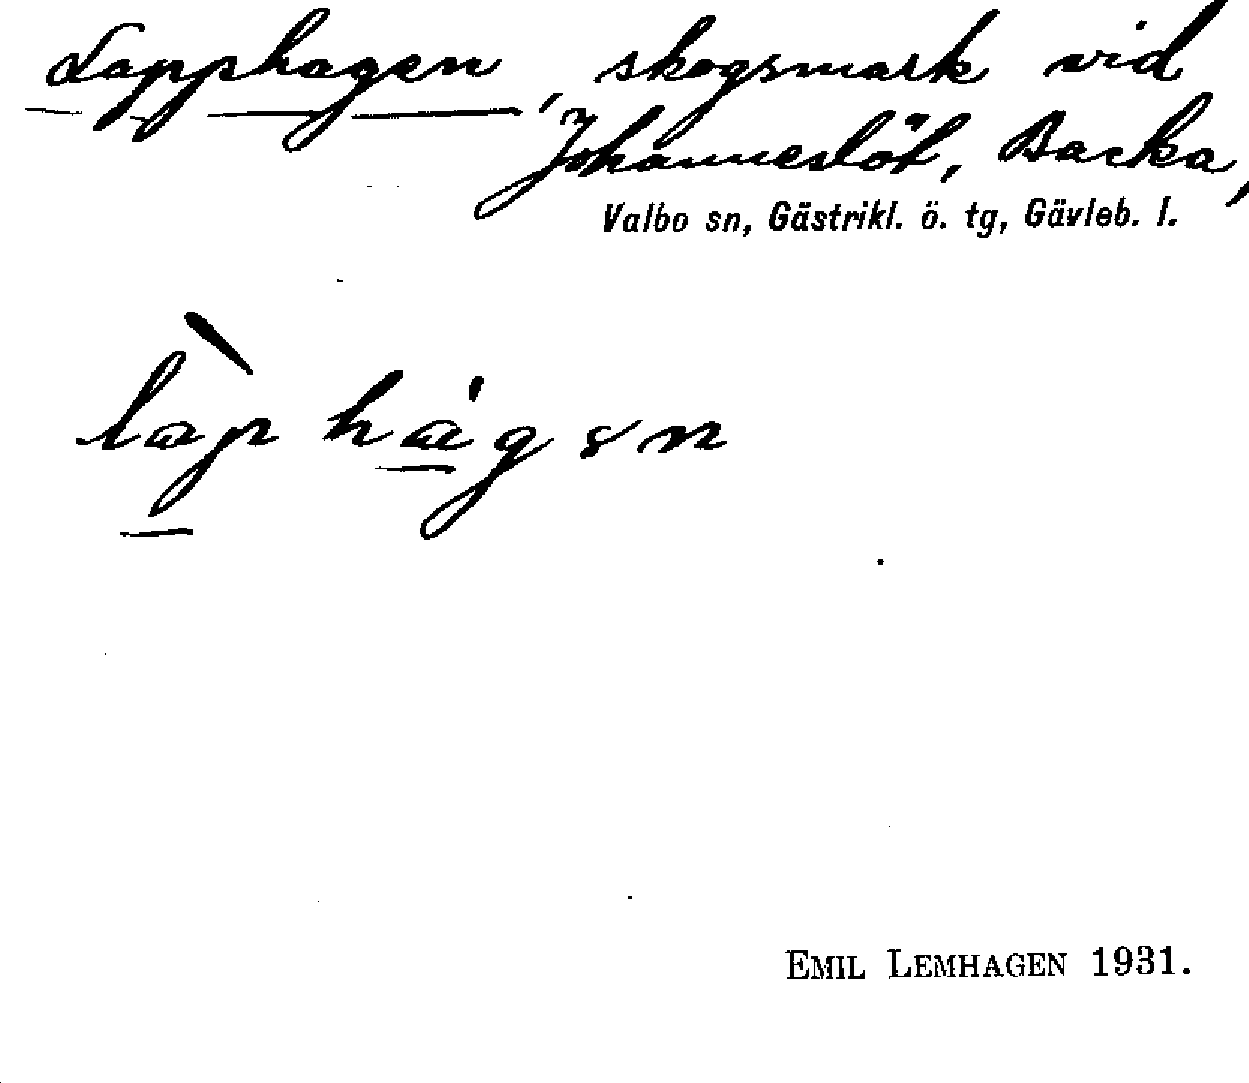 Lapphagen, skogsmark vid
Johanneslöt, Backa,
Valbo sn, Gästrikl. ö. tg, Gävleb. l.
EMIL LEMHAGEN 1931.